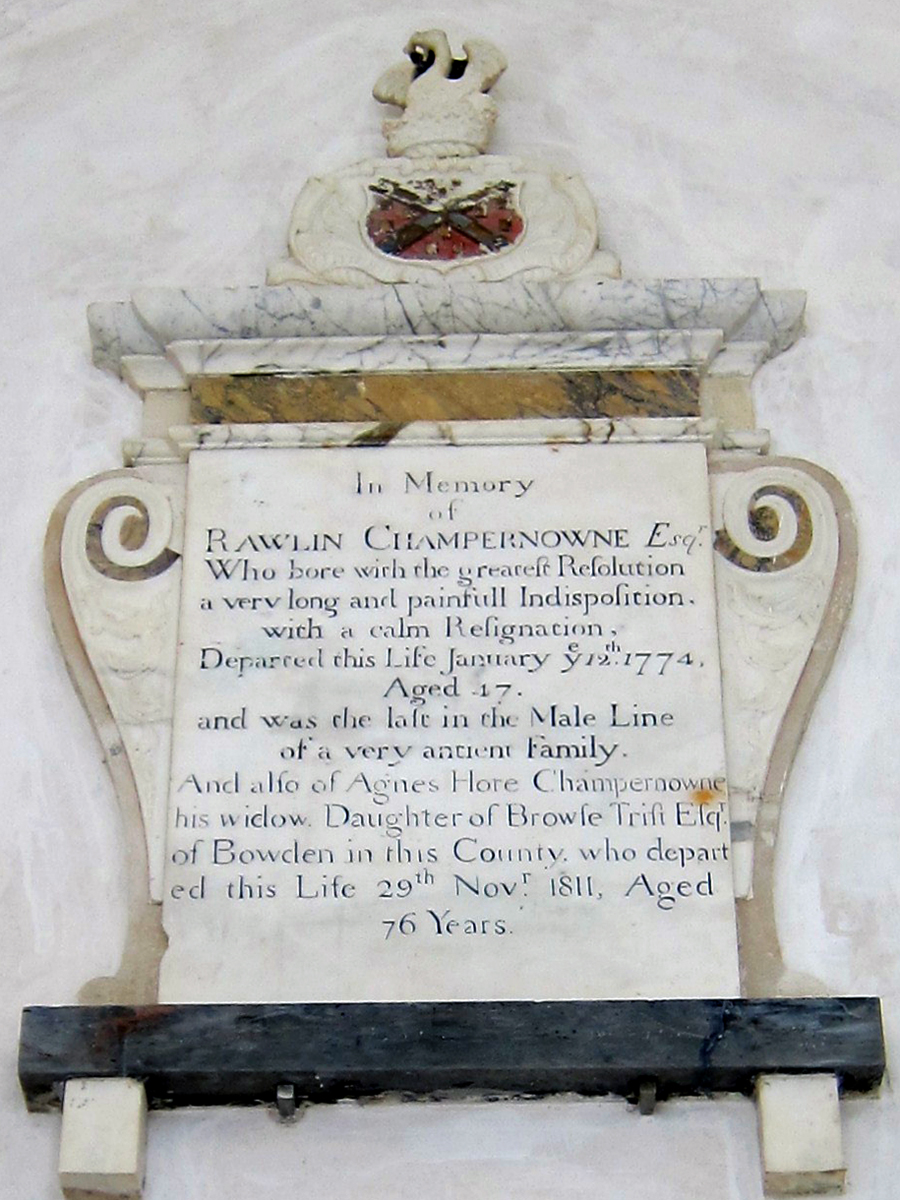 In Memory
of
RAWLIN CHAMPERNOWNE Esqr.
Who bore with the greateſt Reſolution
a very long and painfull Indiſpoſition,
with a calm Reſignation,
Departed this Life January ye 12th. 1774,
Aged 47.
and was the laſt in the Male Line
of a very antient Family.
And alſo of Agnes Hore Champernowne
his widow. Daughter of Browſe Triſt Eſqr.
of Bowden in this County. who depart
ed this Life 29th Novr. 1811, Aged
76 Years.